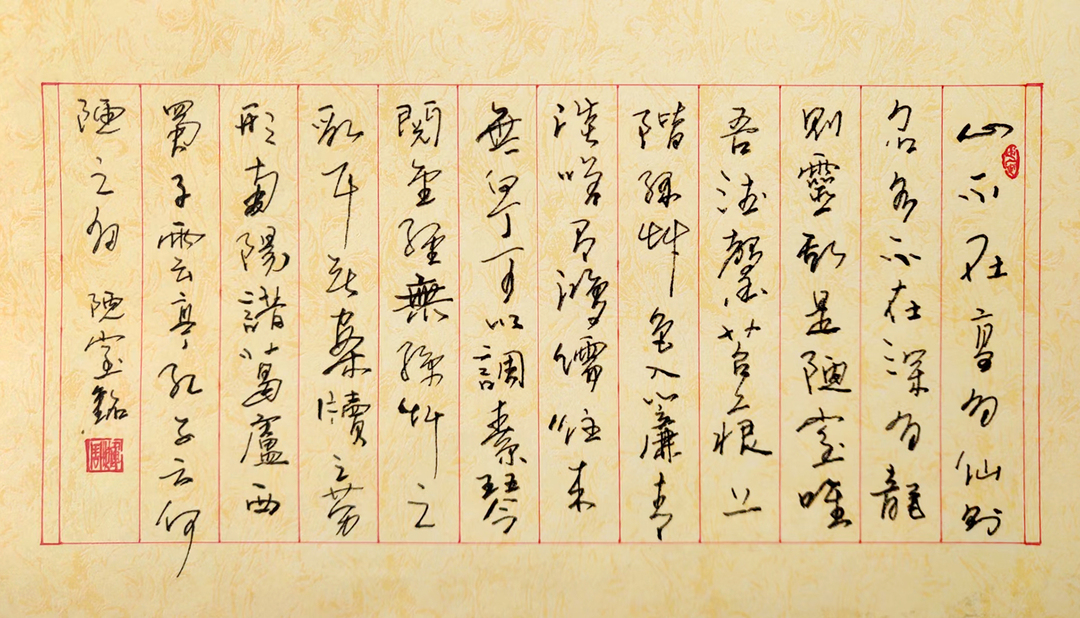 山不在高有仙則
名水不在深有龍
則靈斯是陋室唯
吾德馨苔痕上
階綠艸色入簾青
談笑有鴻儒往來
無白丁可以調素琴
閱金經無絲竹之
亂耳无案牘之勞
形南陽諸葛廬西
蜀子雲亭孔子云何
陋之有 陋室銘